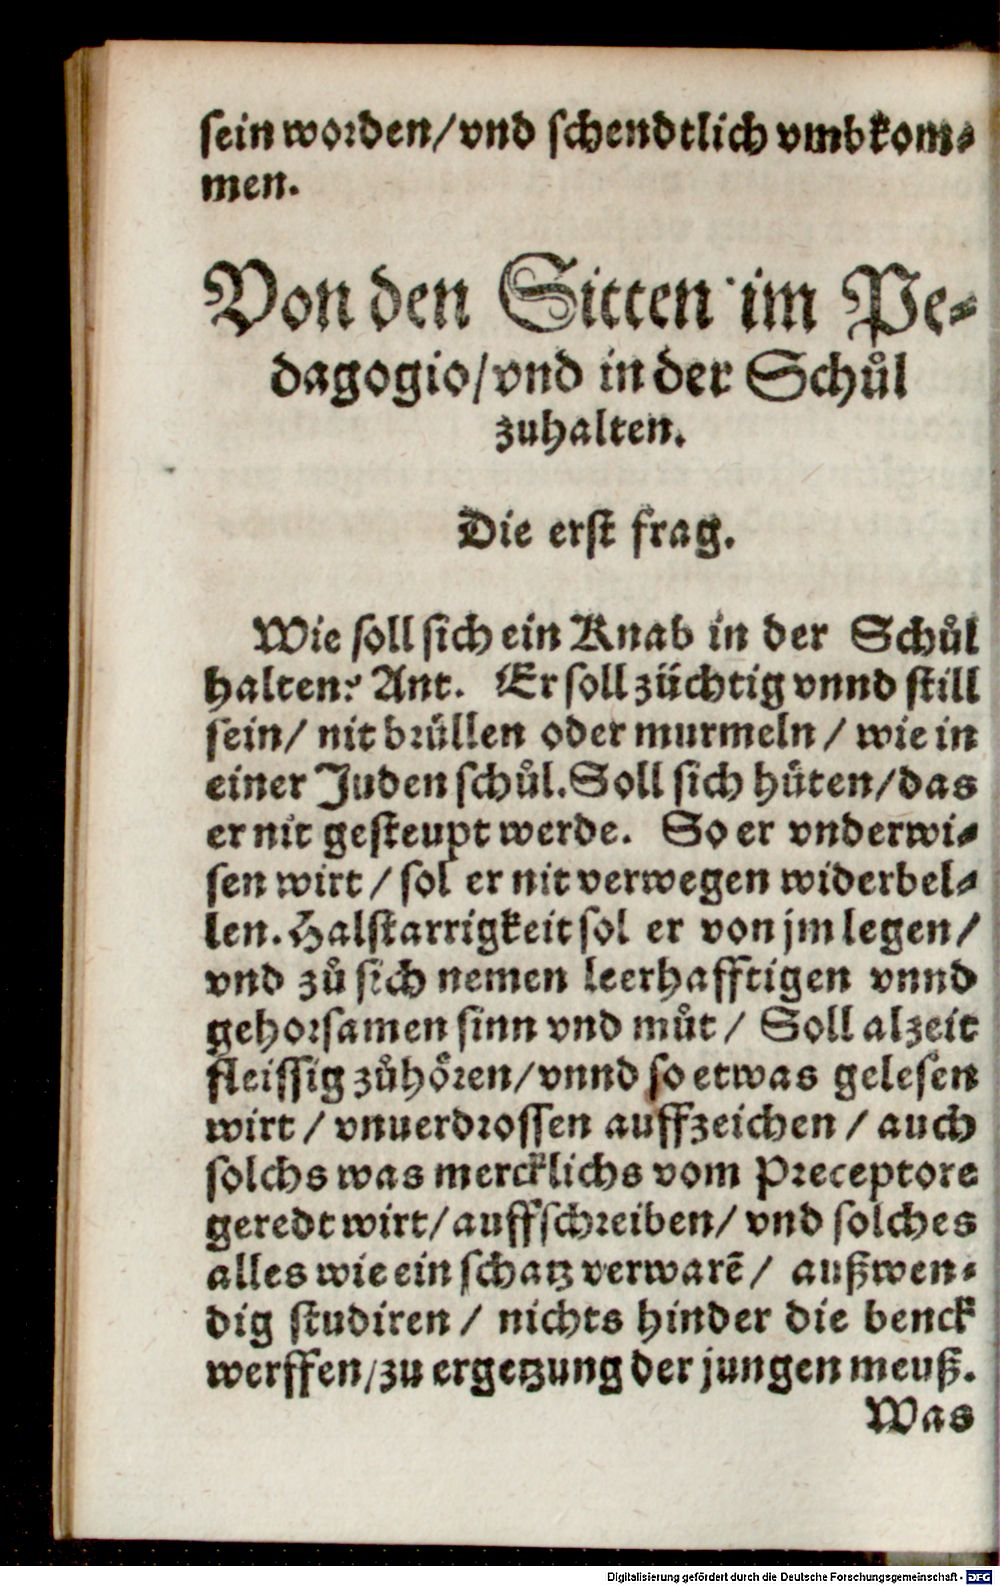 sein worden/vnd schendtlich vmbkom-
men.
Von den Sitten im Pe-
dagogio/vnd in der Schůl
zuhalten.
Die erst frag.
Wie soll sich ein Knab in der Schůl
halten? Ant. Er soll züchtig vnnd still
sein/ nit brüllen oder murmeln / wie in
einer Juden schůl. Soll sich hüten/das
er nit gesteupt werde. So er vnderwi-
sen wirt / sol er nit verwegen widerbel-
len. Halstarrigkeit sol er von jm legen/
vnd zů sich nemen leerhafftigen vnnd
gehorsamen sinn vnd můt / Soll alzeit
fleissig zůhören/vnnd so etwas gelesen
wirt / vnuerdrossen auffzeichen / auch
solchs was mercklichs vom Preceptore
geredt wirt/ auffschreiben/ vnd solches
alles wie ein schatz verwarẽ / außwen-
dig studiren / nichts hinder die benck
werffen/zu ergetzung der jungen meuß.
Was
Digitalisierung gefördert durch die Deutsche Forschungsgemeinschaft - DFG